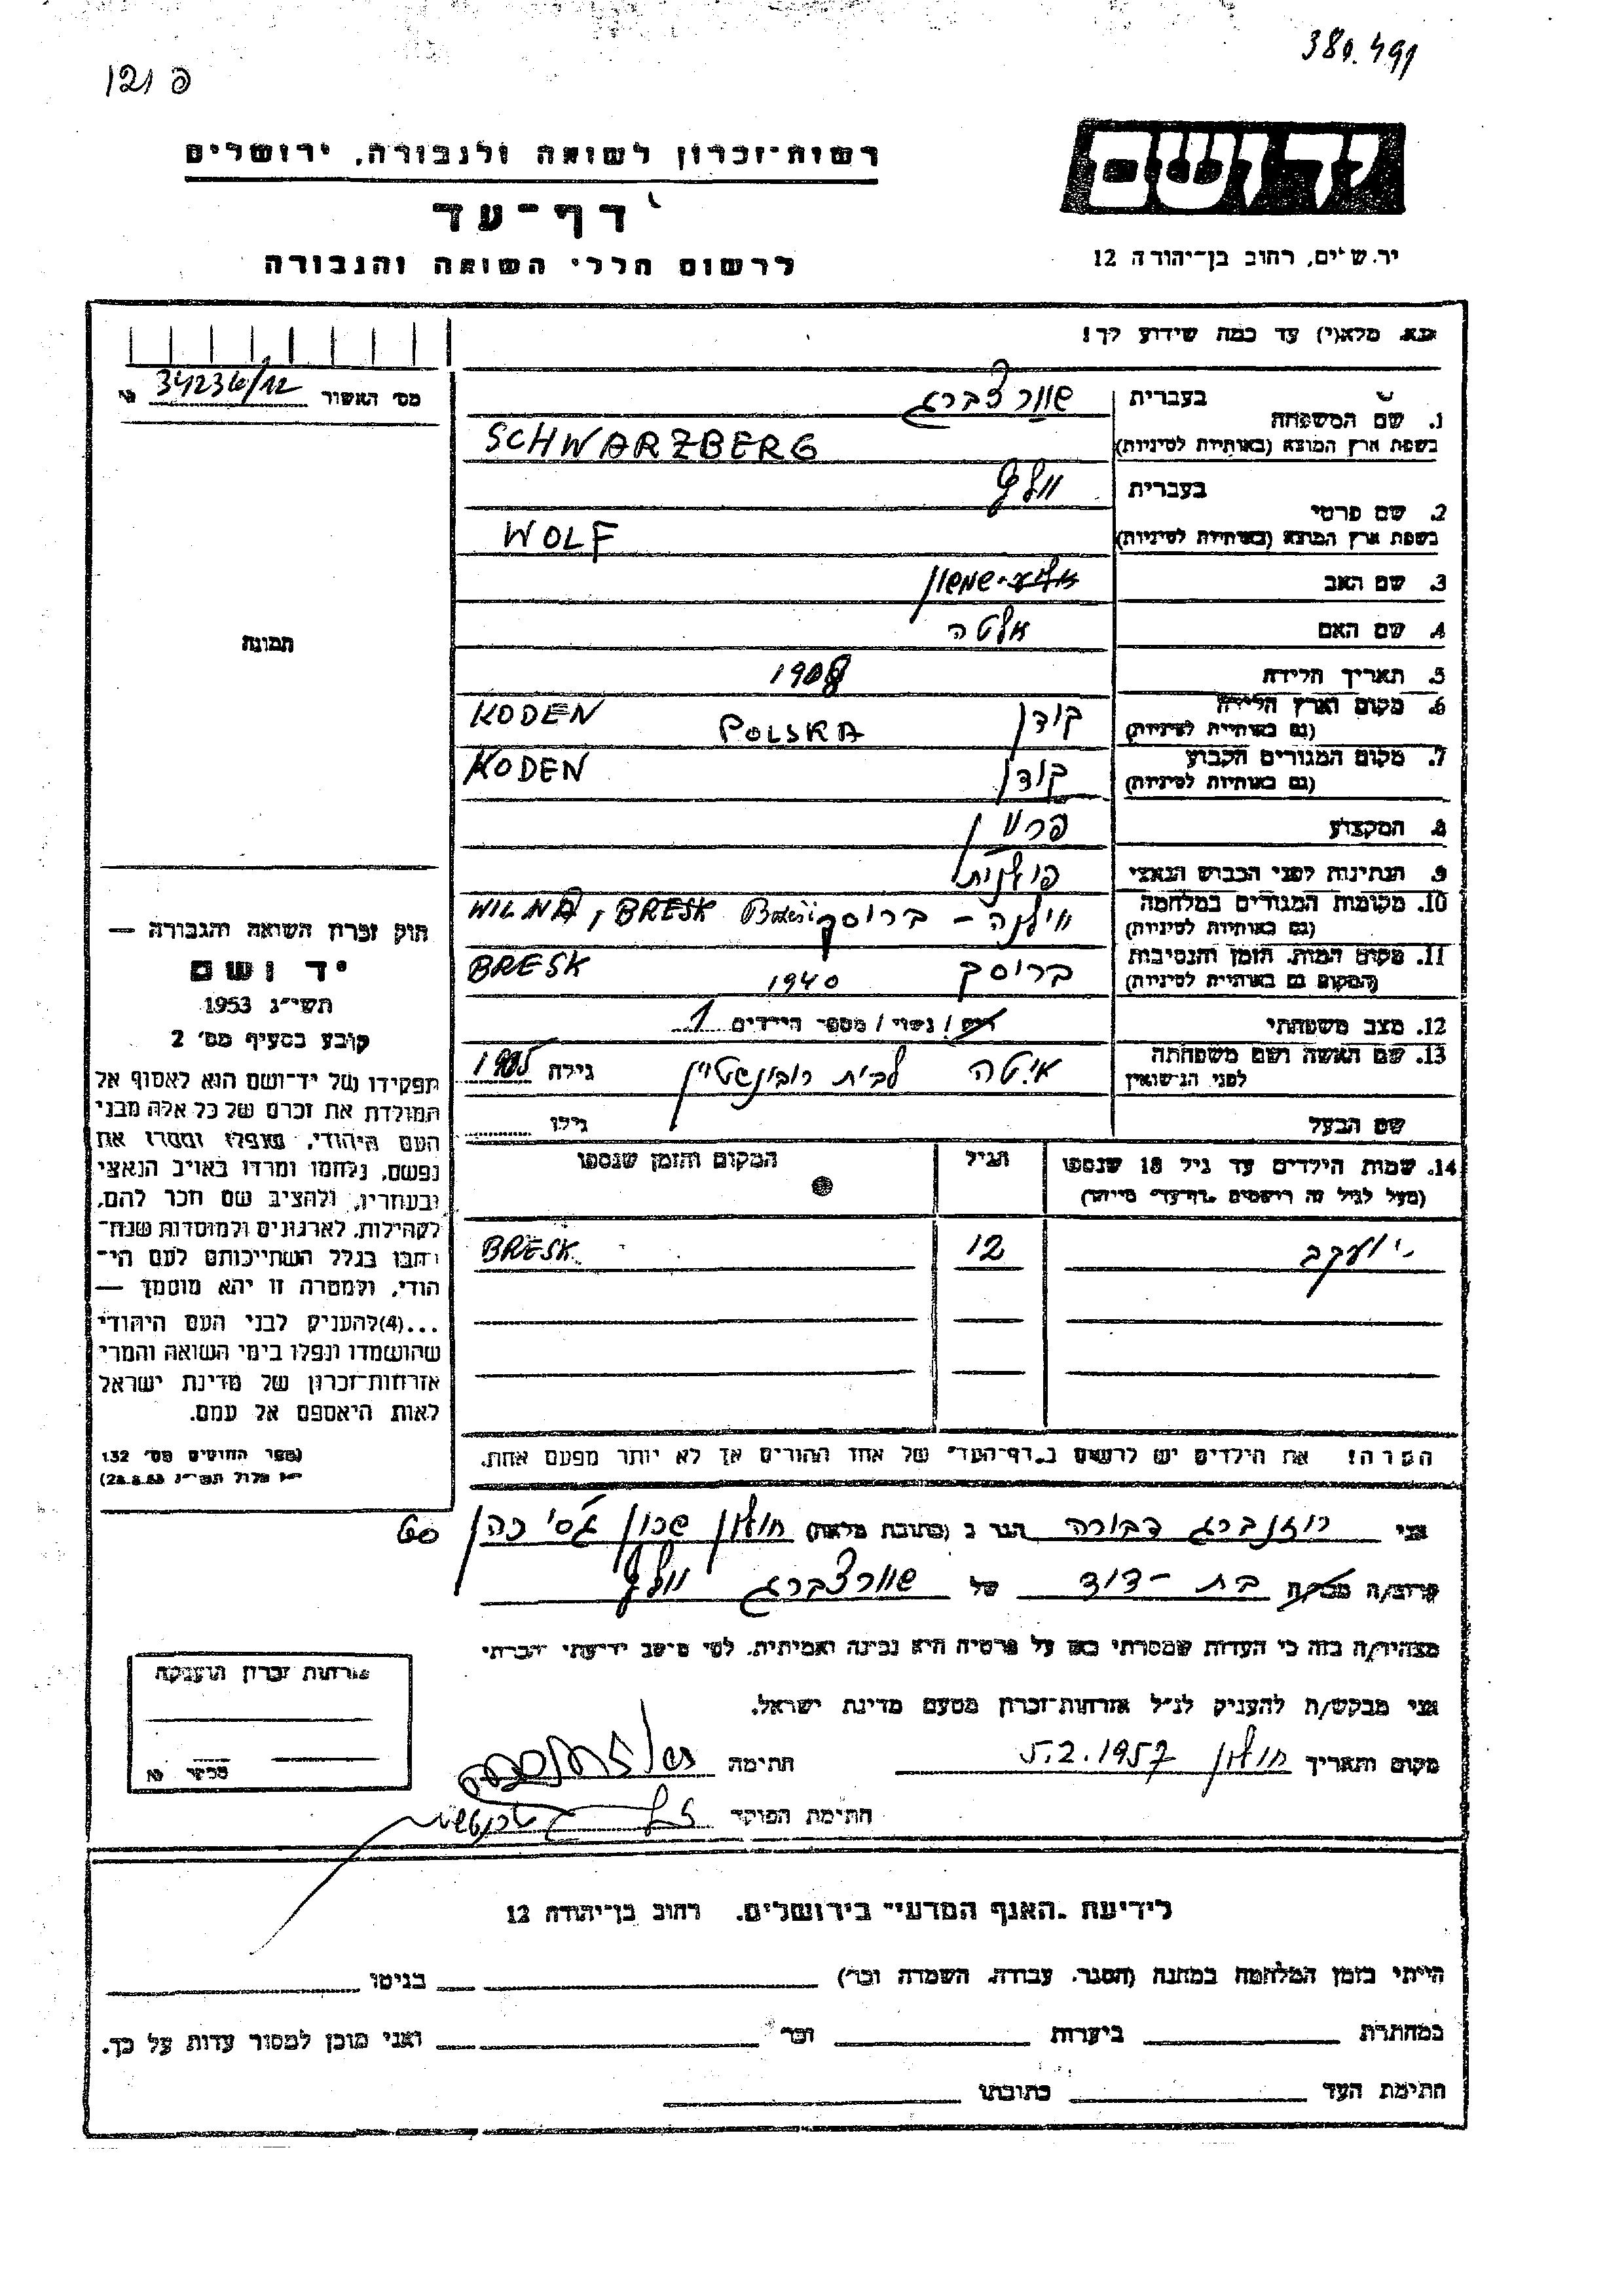 380.491
121 פ
יד ושם
רשות־זכרון לשואה ולגבורה, ירושלים
דף־עד
לרשום חללי השואה והגבורה
רחוב בן־יהודה 12
נא מלא(י) עד כמה שידוע לך!
מס׳ האשור 34236/12
1. שם המשפחה
בעברית שוורצברג
בשפת ארץ המוצא (באותיות לטיניות) SCHWARZBERG
2. שם פרטי
בעברית וולף
בשפת ארץ המוצא (באותיות לטיניות) WOLF
3. שם האב שמשון
4. שם האם אלטה
5. תאריך הלידה
6. מקום וארץ הלידה קודן POLSKA KODEN
(גם באותיות לטיניות)
7. מקום המגורים הקבוע קודן KODEN
(גם באותיות לטיניות)
8. המקצוע
9. הנתינות לפני הכבוש הנאצי פולנית
10. מקומות המגורים במלחמה וילנה - בריסק WILNA, BRESK
(גם באותיות לטיניות)
11. מקום המות, הזמן והנסיבות בריסק 1940 BRESK
(המקום גם באותיות לטיניות)
12. מצב משפחתי רווק / נשוי / מספר הילדים 1
13. שם האשה ושם משפחתה איטה לבית רובינשטיין גילה
לפני הנישואין
שם הבעל גילו
14. שמות הילדים עד גיל 18 שנספו הגיל המקום והזמן שנספו
(מעל לגיל זה רושמים „דף־עד״ מיוחד)
יעקב 12 BRESK
הערה! את הילדים יש לרשום ב„דף־העד״ של אחד ההורים אך לא יותר מפעם אחת.
תמונה
חוק זכרון השואה והגבורה —
יד ושם
תשי״ג 1953
קובע בסעיף מס׳ 2
תפקידו של יד־ושם הוא לאסוף אל
המולדת את זכרם של כל אלה מבני
העם היהודי, שנפלו ומסרו את
נפשם, נלחמו ומרדו באויב הנאצי
ובעוזריו, ולהציב שם וזכר להם,
לקהילות, לארגונים ולמוסדות שנח־
רבו בגלל השתייכותם לעם הי־
הודי, ולמטרה זו יהא מוסמך —
...(4) להעניק לבני העם היהודי
שהושמדו ונפלו בימי השואה והמרי
אזרחות־זכרון של מדינת ישראל
לאות היאספם אל עמם.
(ספר החוקים מס׳ 132
אלול תשי״ג 28.8.53)
אני רוזנברג דבורה הגר ב (כתובת מלאה) חולון שכון 60
קרוב/ה בת-דוד של שוורצברג וולף
מצהיר/ה בזה כי העדות שמסרתי כאן על פרטיה היא נכונה ואמיתית, לפי מיטב ידיעתי והכרתי
אני מבקש/ת להעניק לנ״ל אזרחות־זכרון מטעם מדינת ישראל.
מקום ותאריך חולון 5.2.1957 חתימה
חתימת הפוקד
אזרחות זכרון הוענקה
לידיעת „האגף המדעי״ בירושלים, רחוב בן־יהודה 12
הייתי בזמן המלחמה במחנה (הסגר, עבודה, השמדה וכו׳) בגיטו
במחתרת ביערות וכו׳ ואני מוכן למסור עדות על כך.
חתימת העד כתובתו